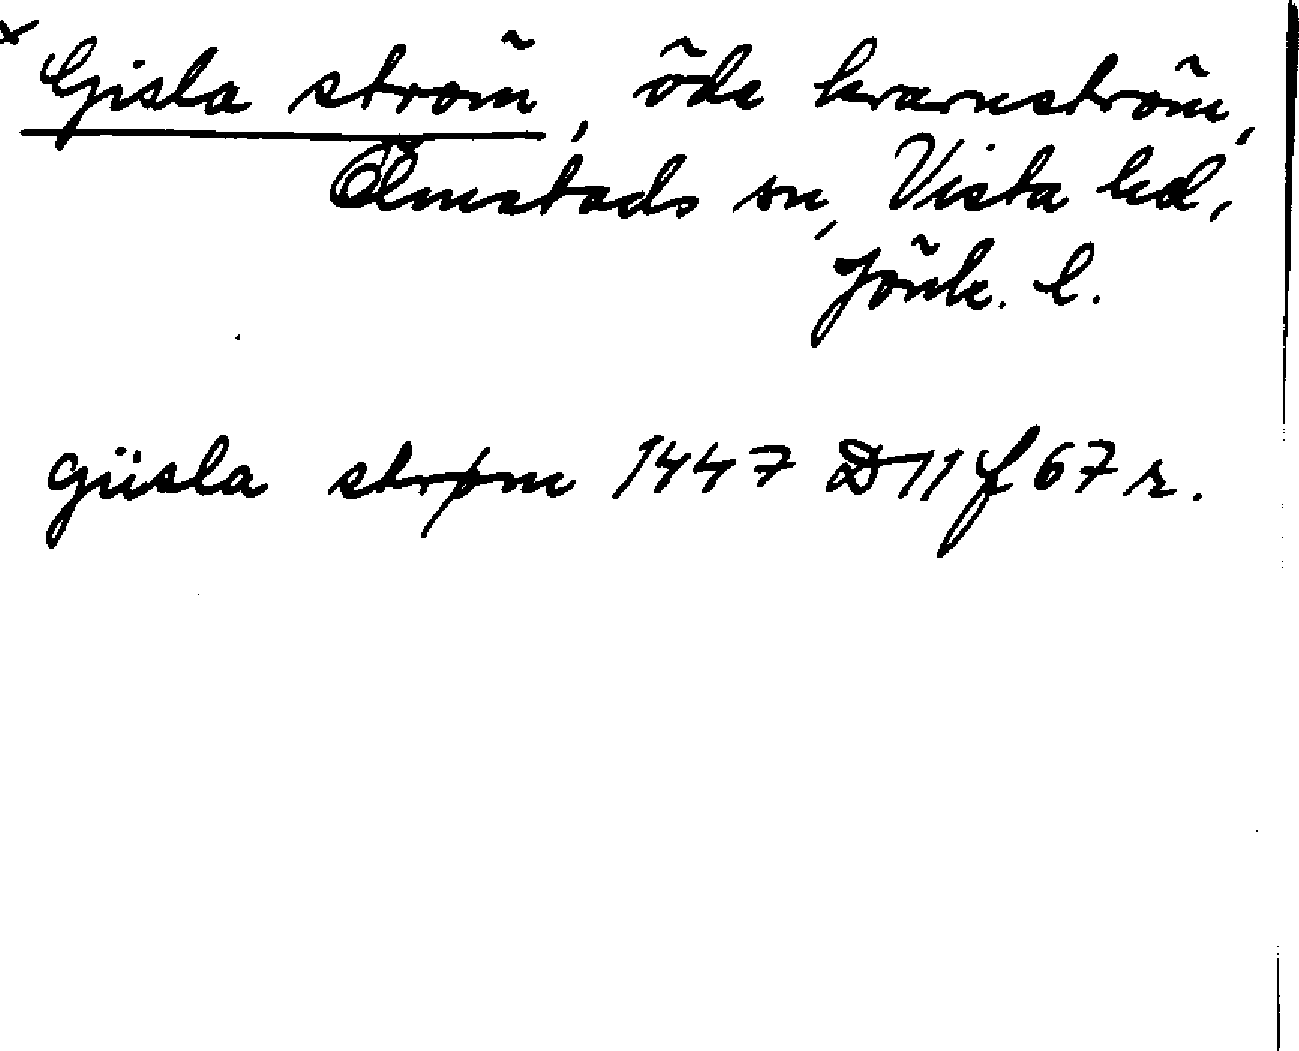 × Gisla ström, öde kvarnström,
Ölmstads sn, Vista hd,
Jönk. l.
giisla strøm 1447 D 11 f 67 r.